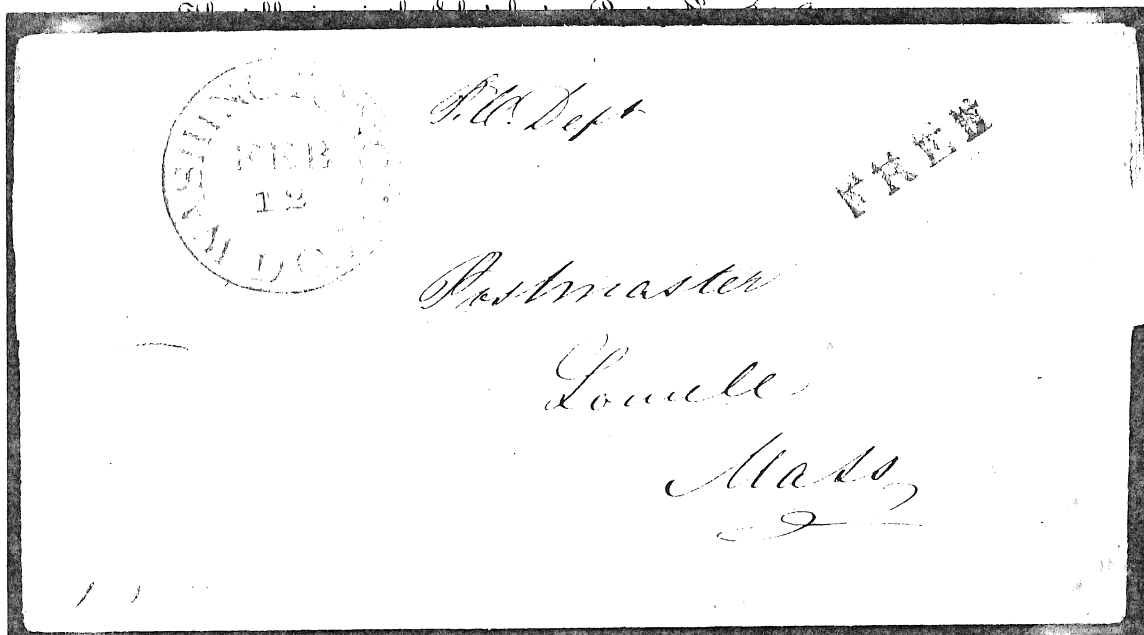 WASHINGTON CITY
FEB
12
P.O. Dept
FREE
Postmaster
Lowell
Mass